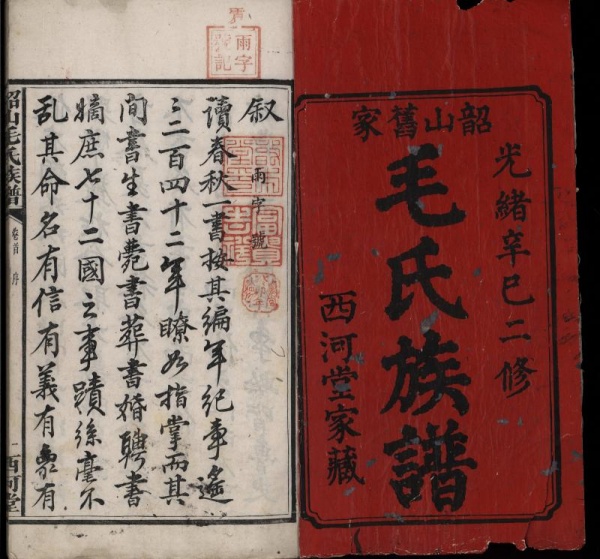 韶山舊家
光緒辛巳二修
毛氏族譜
西河堂家藏
雨字
號記
敘
雨字號
讀春秋一書按其編年紀事遙
二百四十二年瞭如指掌而其
間書生書薨書葬書婚聘書
嫡庶七十二國之事蹟絲毫不
亂其命名有信有義有象有
韶山毛氏族譜
卷首
序
一
西河堂